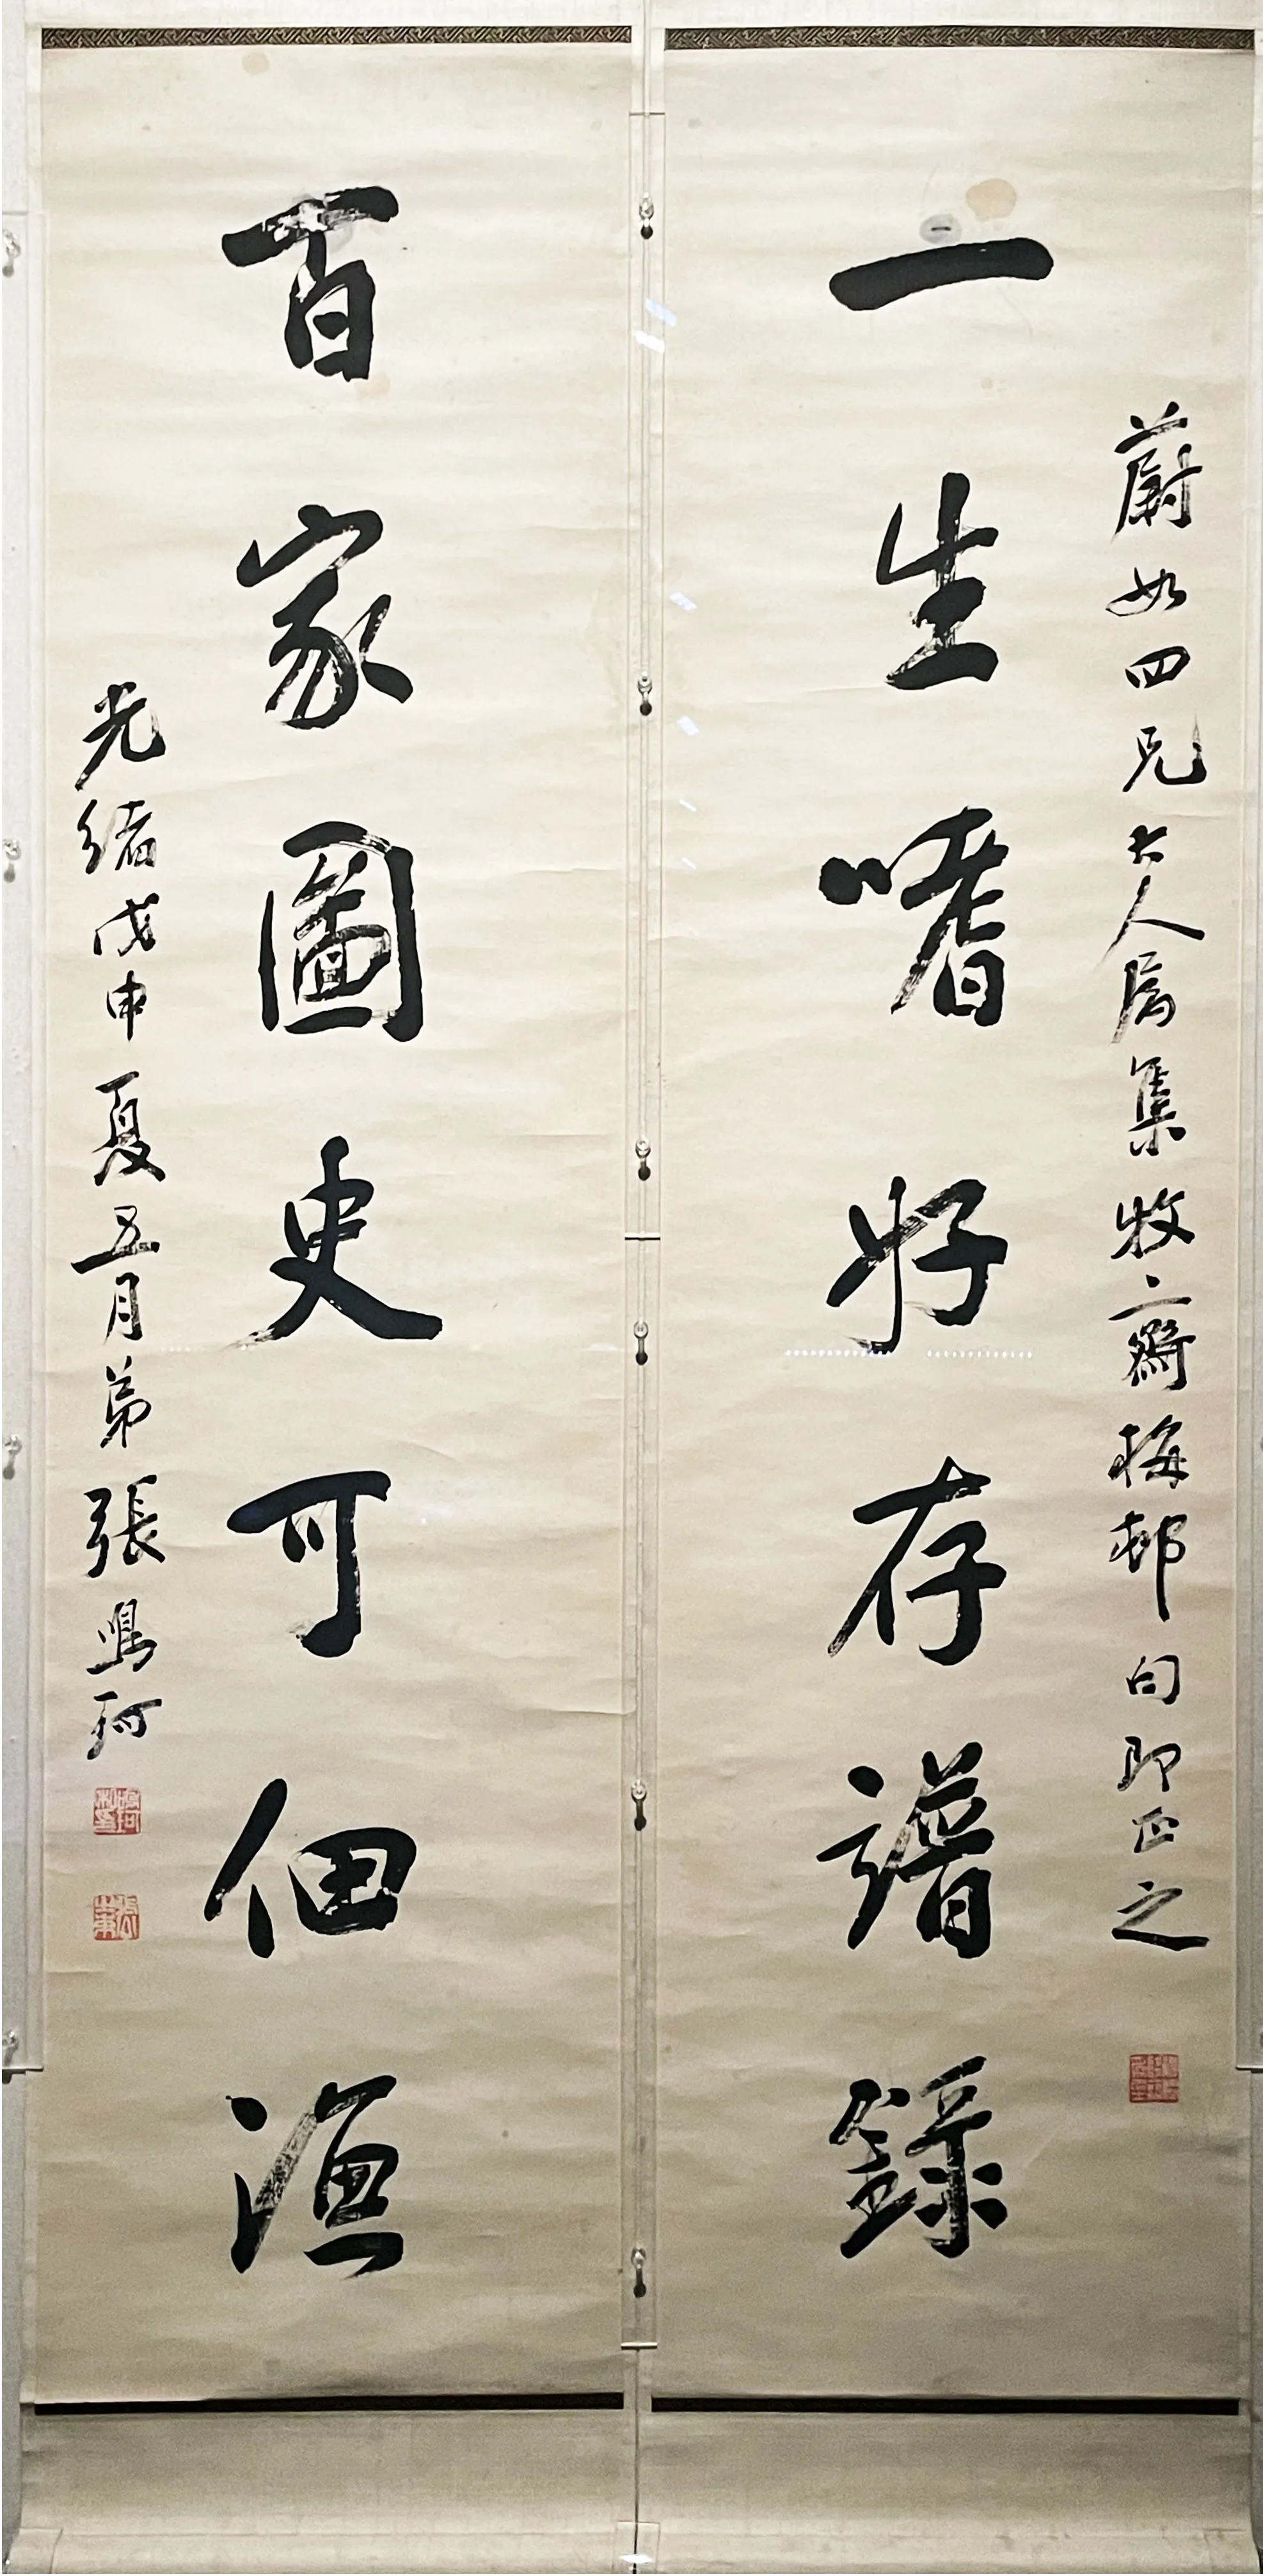 蔚如四兄大人属集牧斋梅邨句即正之
一生嗜好存譜錄
百家圖史可佃漁
光緒戊申夏五月弟張鳴珂